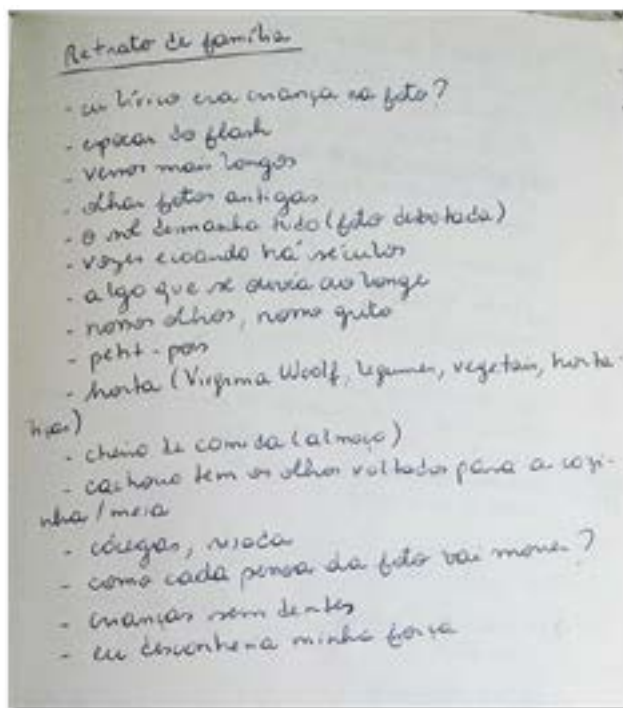 Retrato de família
- eu lírico era criança na foto?
- espocar do flash
- versos mais longos
- olhar fotos antigas
- o sol desmancha tudo (foto desbotada)
- vozes ecoando há séculos
- algo que se ouvia ao longe
- nossos olhos, nosso grito
- petit-pois
- horta (Virginia Woolf, legumes, vegetais, horta-
liças)
- cheiro de comida (almoço)
- cachorro tem os olhos voltados para a cozi-
nha / mesa
- cócegas, risada
- como cada pessoa da foto vai morrer?
- crianças sem dentes
- eu desconhecia minha força